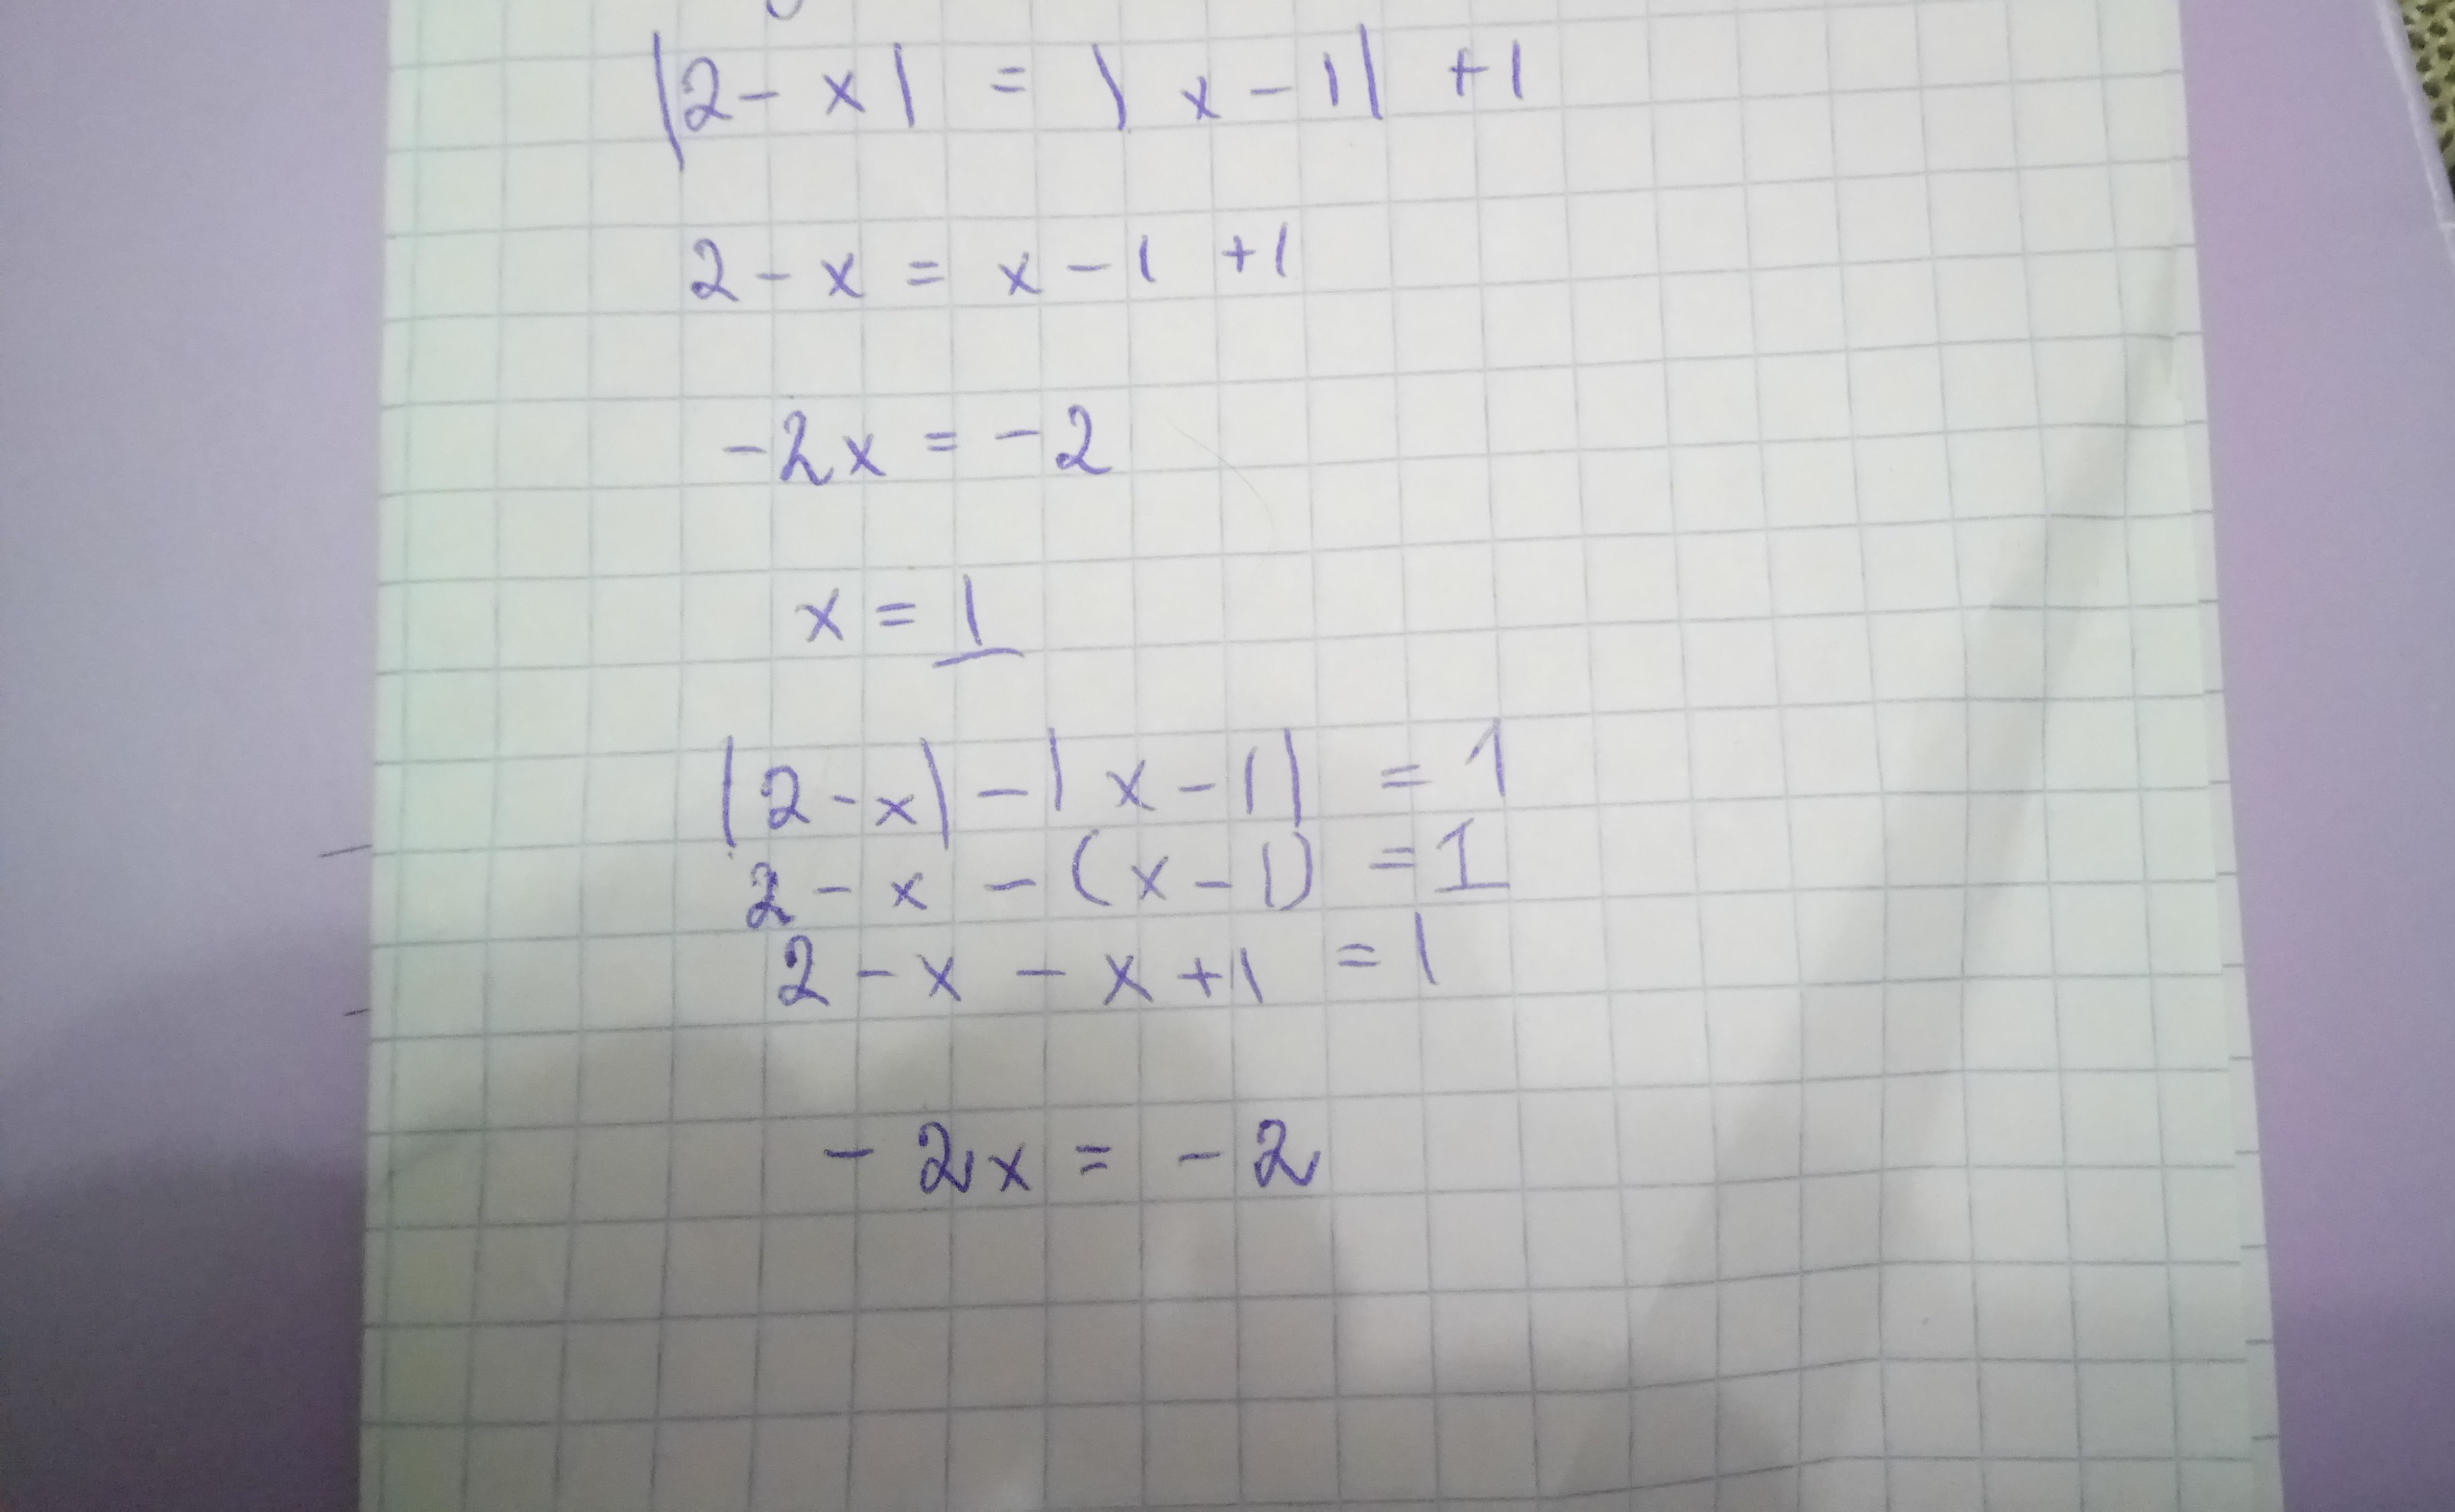 |2 - x| = |x - 1| + 1
2 - x = x - 1 + 1
-2x = -2
x = 1
|2 - x| - |x - 1| = 1
2 - x - (x - 1) = 1
2 - x - x + 1 = 1
- 2x = - 2